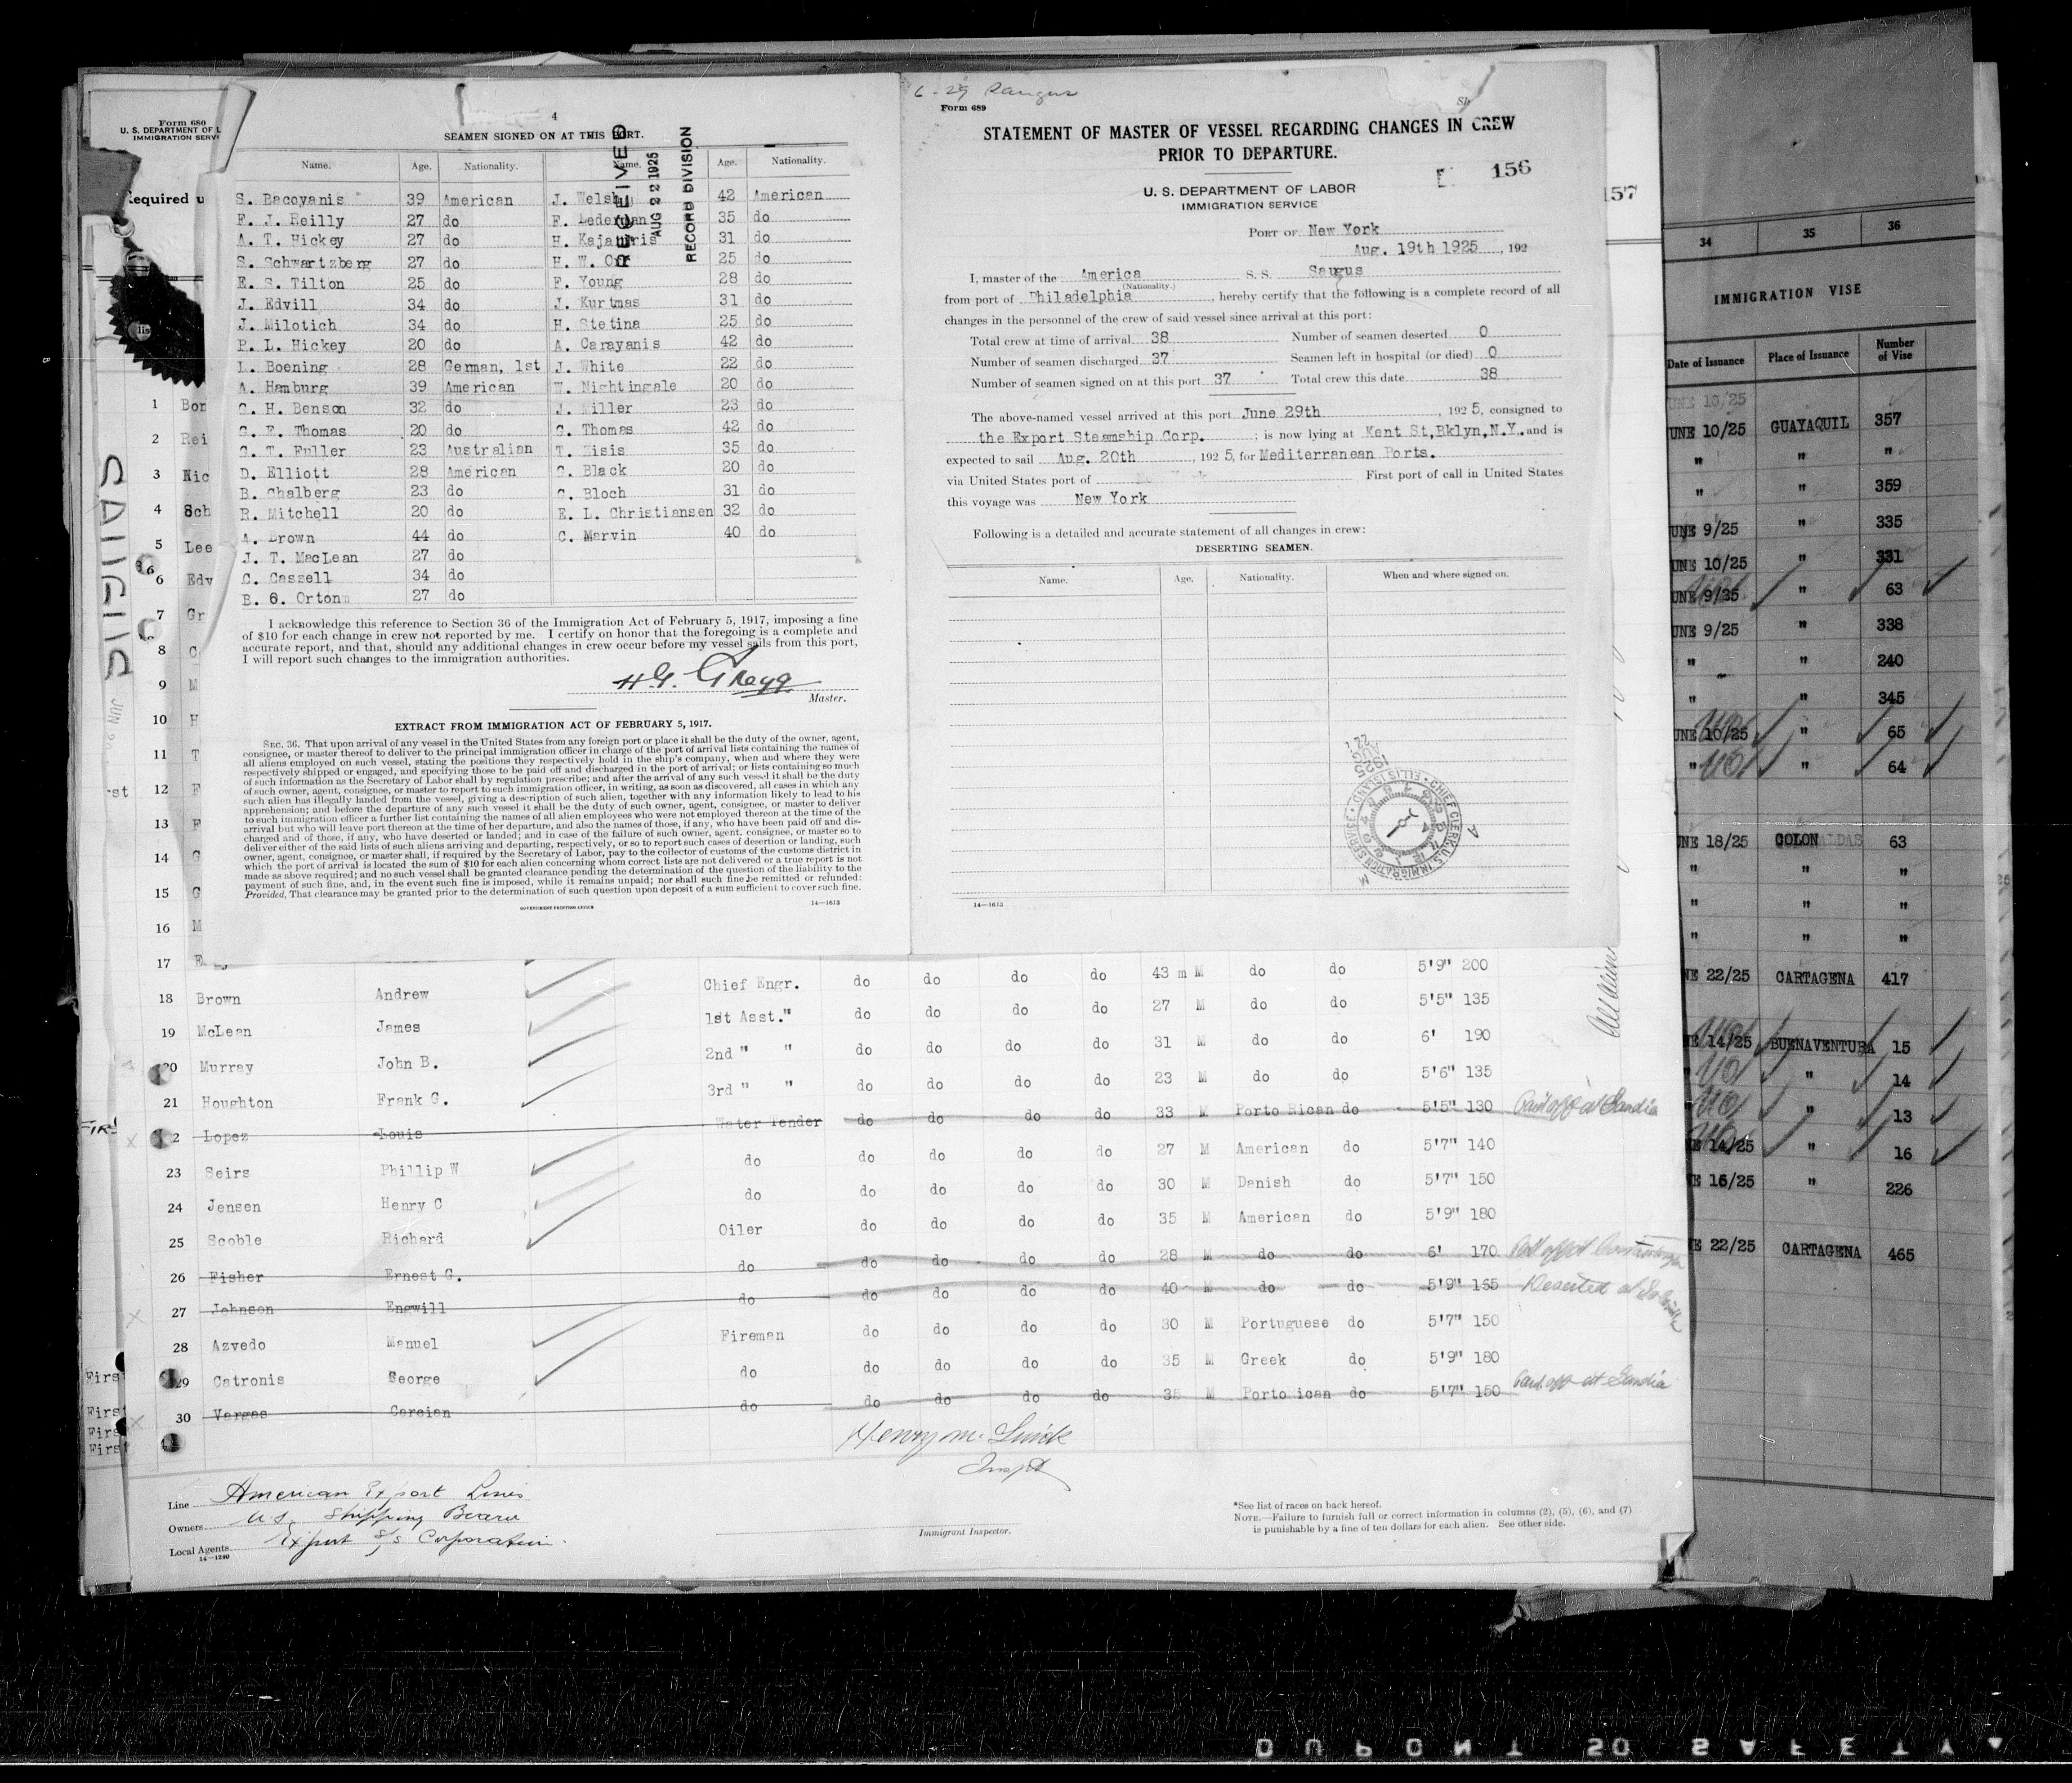 Form 680
U. S. DEPARTMENT OF L
IMMIGRATION SERV
Required u
4
SEAMEN SIGNED ON AT THIS PORT.
RECEIVED
AUG 22 1925
RECORD DIVISION
Name. Age. Nationality. Name. Age. Nationality.
S. Bacoyanis 39 American J. Welsh 42 American
F. J. Reilly 27 do F. Lederman 35 do
A. T. Hickey 27 do H. Kajamris 31 do
S. Schwartzberg 27 do H. W. Orr 25 do
E. S. Tilton 25 do F. Young 28 do
J. Edvill 34 do J. Kurtmas 31 do
J. Milotich 34 do H. Stetina 25 do
P. L. Hickey 20 do A. Carayanis 42 do
L. Boening 28 German, 1st J. White 22 do
A. Hamburg 39 American W. Nightingale 20 do
C. H. Benson 32 do J. Miller 23 do
G. E. Thomas 20 do G. Thomas 42 do
C. T. Fuller 23 Australian T. Misis 35 do
D. Elliott 28 American C. Black 20 do
B. Chalberg 23 do C. Bloch 31 do
R. Mitchell 20 do E. L. Christiansen 32 do
A. Brown 44 do C. Marvin 40 do
J. T. MacLean 27 do
C. Cassell 34 do
B. G. Orton 27 do
I acknowledge this reference to Section 36 of the Immigration Act of February 5, 1917, imposing a fine
of $10 for each change in crew not reported by me. I certify on honor that the foregoing is a complete and
accurate report, and that, should any additional changes in crew occur before my vessel sails from this port,
I will report such changes to the immigration authorities.
H. G. Gregg
Master.
EXTRACT FROM IMMIGRATION ACT OF FEBRUARY 5, 1917.
SEC. 36. That upon arrival of any vessel in the United States from any foreign port or place it shall be the duty of the owner, agent,
consignee, or master thereof to deliver to the principal immigration officer in charge of the port of arrival lists containing the names of
all aliens employed on such vessel, stating the positions they respectively hold in the ship's company, when and where they were
respectively shipped or engaged, and specifying those to be paid off and discharged in the port of arrival; or lists containing so much
of such information as the Secretary of Labor shall by regulation prescribe; and after the arrival of any such vessel it shall be the duty
of such owner, agent, consignee, or master to report to such immigration officer, in writing, as soon as discovered, all cases in which any
such alien has illegally landed from the vessel, giving a description of such alien, together with any information likely to lead to his
apprehension; and before the departure of any such vessel it shall be the duty of such owner, agent, consignee, or master to deliver
to such immigration officer a further list containing the names of all alien employees who were not employed thereon at the time of the
arrival but who will leave port thereon at the time of her departure, and also the names of those, if any, who have been paid off and dis-
charged and of those, if any, who have deserted or landed; and in case of the failure of such owner, agent, consignee, or master so to
deliver either of the said lists of such aliens arriving and departing, respectively, or so to report such cases of desertion or landing, such
owner, agent, consignee, or master shall, if required by the Secretary of Labor, pay to the collector of customs of the customs district in
which the port of arrival is located the sum of $10 for each alien concerning whom correct lists are not delivered or a true report is not
made as above required; and no such vessel shall be granted clearance pending the determination of the question of the liability to the
payment of such fine, and, in the event such fine is imposed, while it remains unpaid; nor shall such fine be remitted or refunded:
Provided, That clearance may be granted prior to the determination of such question upon deposit of a sum sufficient to cover such fine.
GOVERNMENT PRINTING OFFICE
14—1613
6-29 Saugus
Form 689
STATEMENT OF MASTER OF VESSEL REGARDING CHANGES IN CREW
PRIOR TO DEPARTURE.
156
157
U. S. DEPARTMENT OF LABOR
IMMIGRATION SERVICE
PORT OF New York
Aug. 19th 1925, 192
I, master of the America S. S. Saugus
(Nationality.)
from port of Philadelphia, hereby certify that the following is a complete record of all
changes in the personnel of the crew of said vessel since arrival at this port:
Total crew at time of arrival 38 Number of seamen deserted 0
Number of seamen discharged 37 Seamen left in hospital (or died) 0
Number of seamen signed on at this port 37 Total crew this date 38
The above-named vessel arrived at this port June 29th, 192 5, consigned to
the Export Steamship Corp.; is now lying at Kent St, Bklyn, N.Y. and is
expected to sail Aug. 20th, 192 5, for Mediterranean Ports.
via United States port of First port of call in United States
this voyage was New York
Following is a detailed and accurate statement of all changes in crew:
DESERTING SEAMEN.
Name. Age. Nationality. When and where signed on.
CHIEF CLERK, U.S. IMMIGRATION SERVICE · ELLIS ISLAND
1925 AUG 22
14—1613
SAUGUS
JUN
1 Bor
2 Rei
3 Hic
4 Sch
5 Lee
6 Edv
7 Gr
8 C
9 M
10 H
11 T
12 F
13 F
14 G
15 G
16 M
17 43 m M do do 5'9" 200
18 Brown Andrew Chief Engr. do do do do 27 M do do 5'5" 135
19 McLean James 1st Asst." do do do do 31 M do do 6' 190
20 Murray John B. 2nd " " do do do do 23 M do do 5'6" 135
21 Houghton Frank G. 3rd " " do do do do
22 Lopez Louis Water Tender do do do do 33 M Porto Rican do 5'5" 130 Paid off at Gandia
23 Seirs Phillip W do do do do do 27 M American do 5'7" 140
24 Jensen Henry C do do do do do 30 M Danish do 5'7" 150
25 Scoble Richard Oiler do do do do 35 M American do 5'9" 180
26 Fisher Ernest G. do do do do do 28 M do do 6' 170
27 Johnson Engwill do do do do do 40 M do do 5'9" 165 Deserted at
28 Azvedo Manuel Fireman do do do do 30 M Portuguese do 5'7" 150
29 Catronis George do do do do do 35 M Greek do 5'9" 180
30 Vargas Carcian do do do do do 35 M Porto Rican do 5'7" 150 Paid off at Gandia
Line American Export Lines
Owners U.S. Shipping Board
Local Agents Export S/S Corporation.
14—1240
Immigrant Inspector.
*See list of races on back hereof.
NOTE.—Failure to furnish full or correct information in columns (2), (5), (6), and (7)
is punishable by a fine of ten dollars for each alien. See other side.
First
First
First
First
34 35 36
IMMIGRATION VISE
Date of Issuance Place of Issuance Number of Vise
UNE 10/25
UNE 10/25 GUAYAQUIL 357
" " "
" " 359
UNE 9/25 " 335
UNE 10/25 " 331
UNE 9/25 " 63
UNE 9/25 " 338
" " 240
" " 345
UNE 10/25 " 65
" " 64
UNE 18/25 COLON 63
" " "
" " "
" " "
NE 22/25 CARTAGENA 417
NE 14/25 BUENAVENTURA 15
" 14
" 13
NE 14/25 " 16
NE 16/25 " 226
NE 22/25 CARTAGENA 465
DUPONT 50 SAFETY